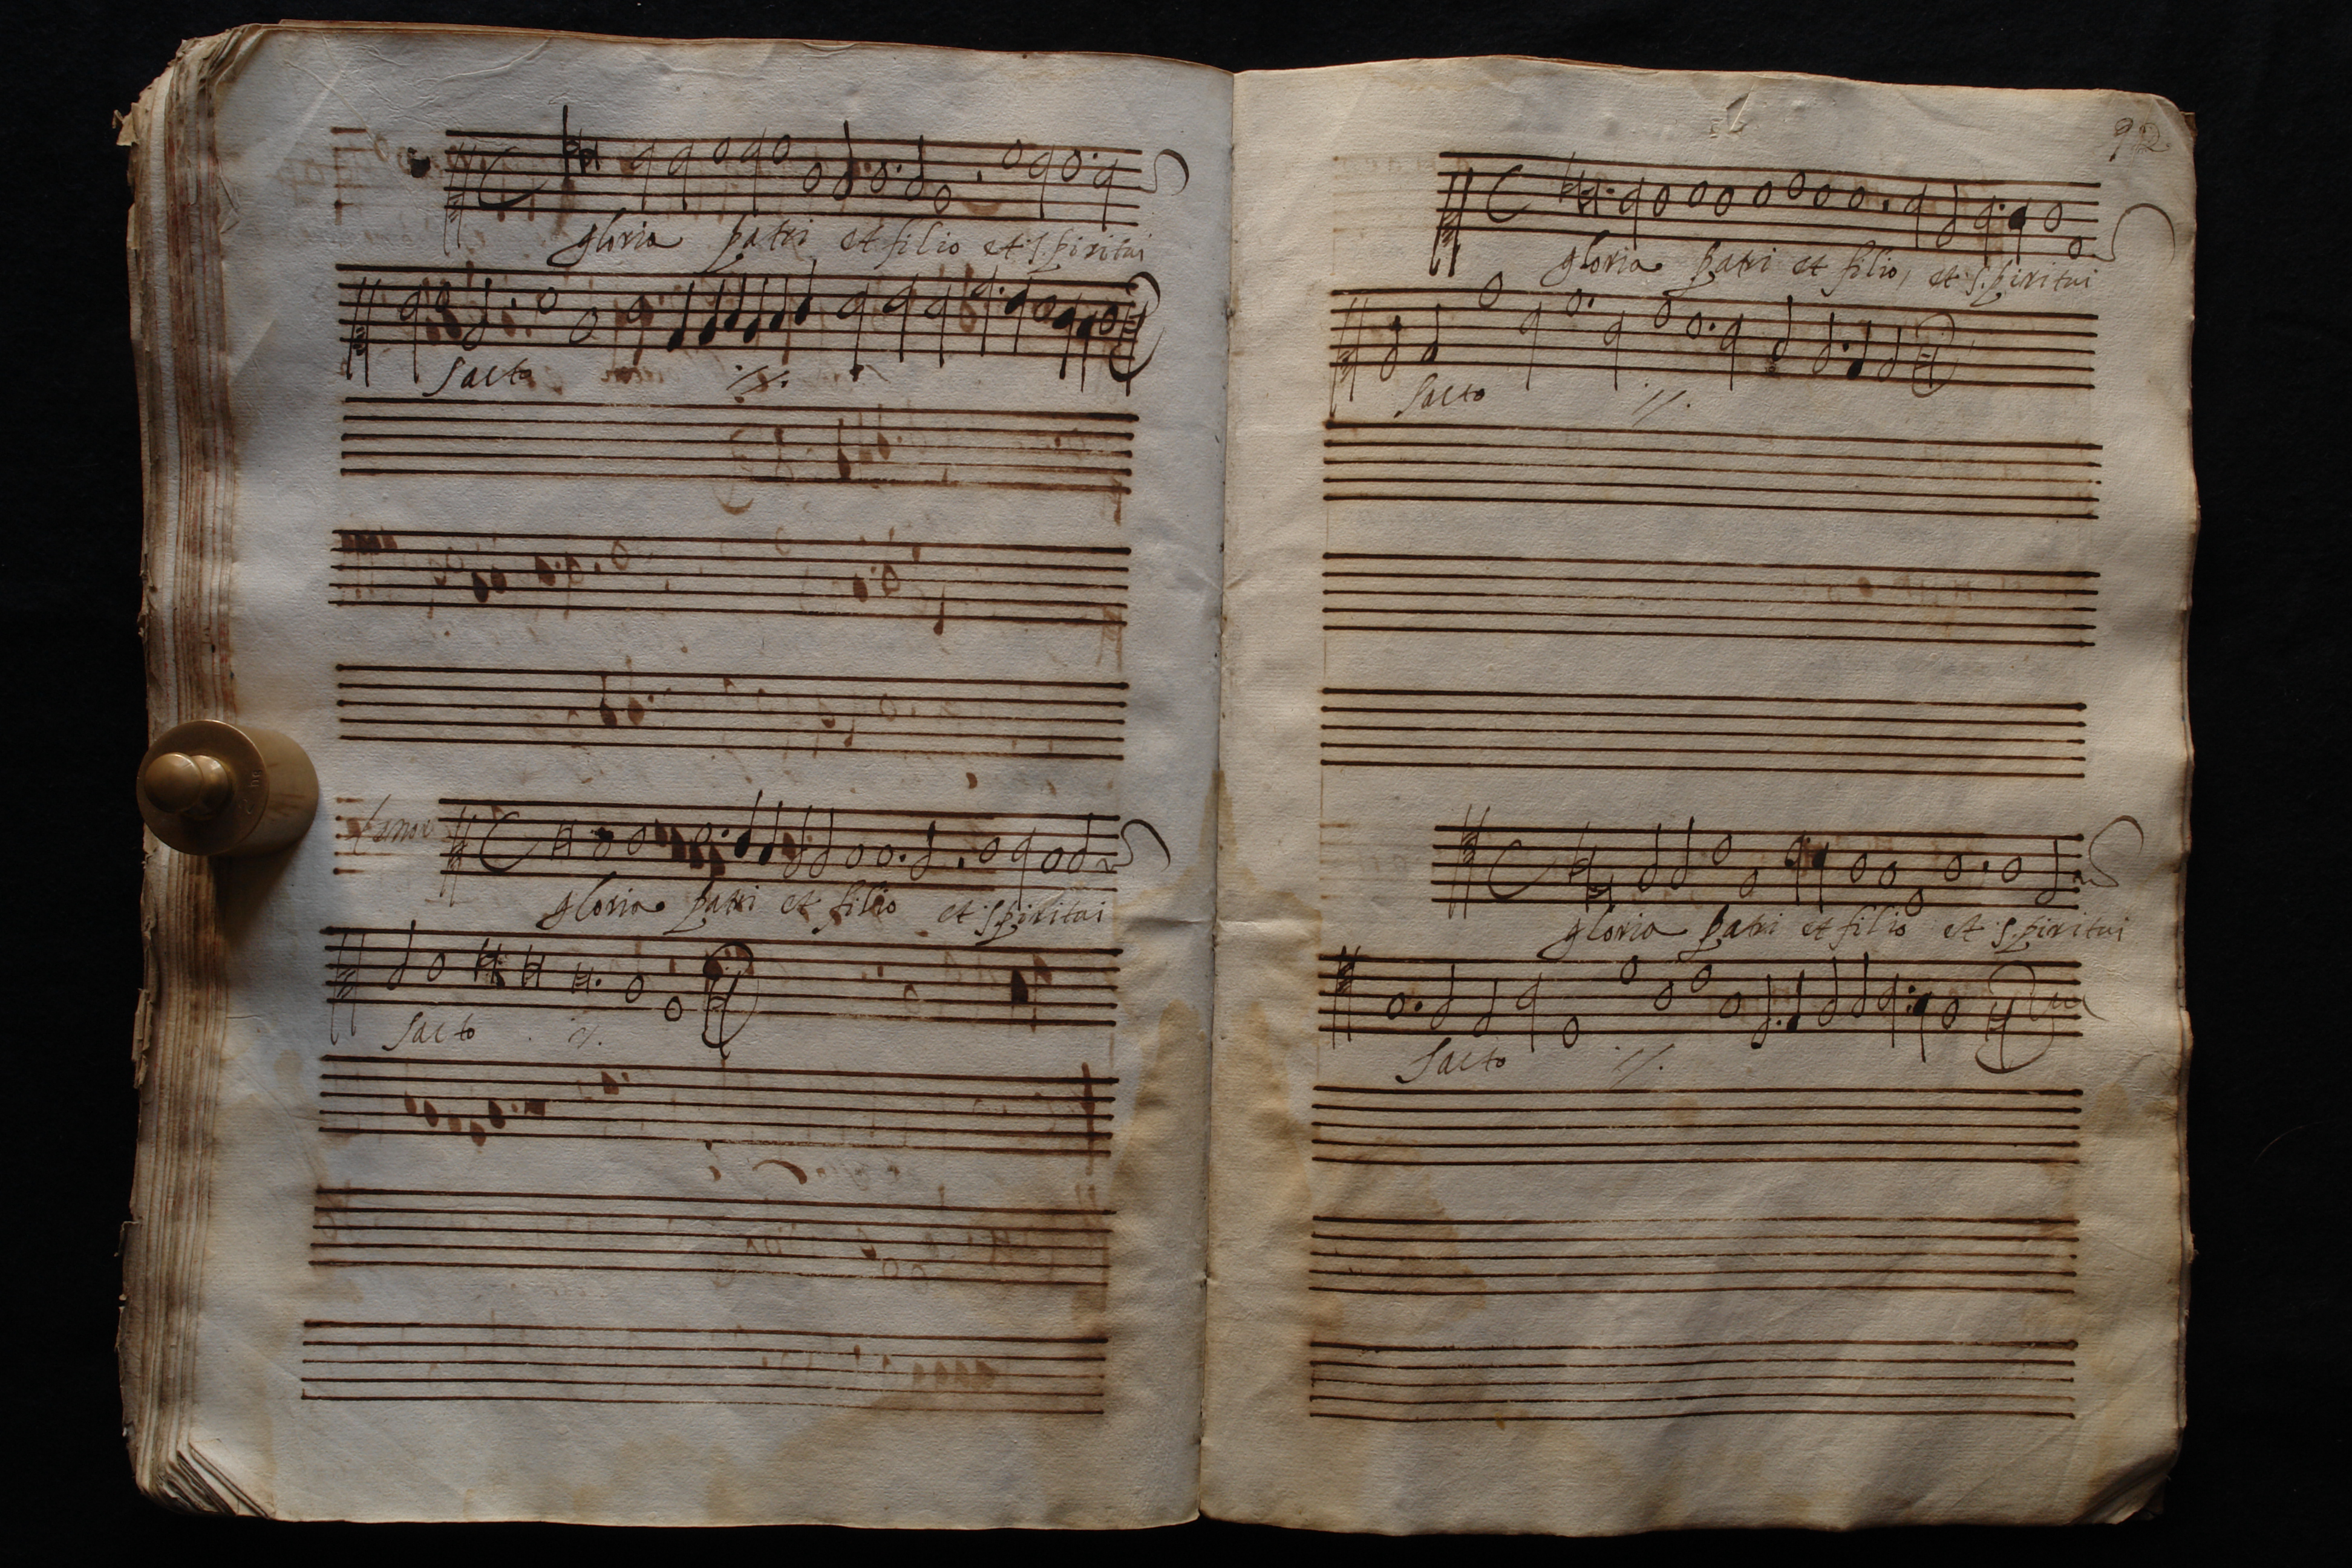 gloria patri et filio et spiritui
sacto ij.
Tenor
gloria patri et filio et spiritui
sacto ij.
92
gloria patri et filio, et spiritui
sacto ij.
gloria patri et filio et spiritui
sacto ij.